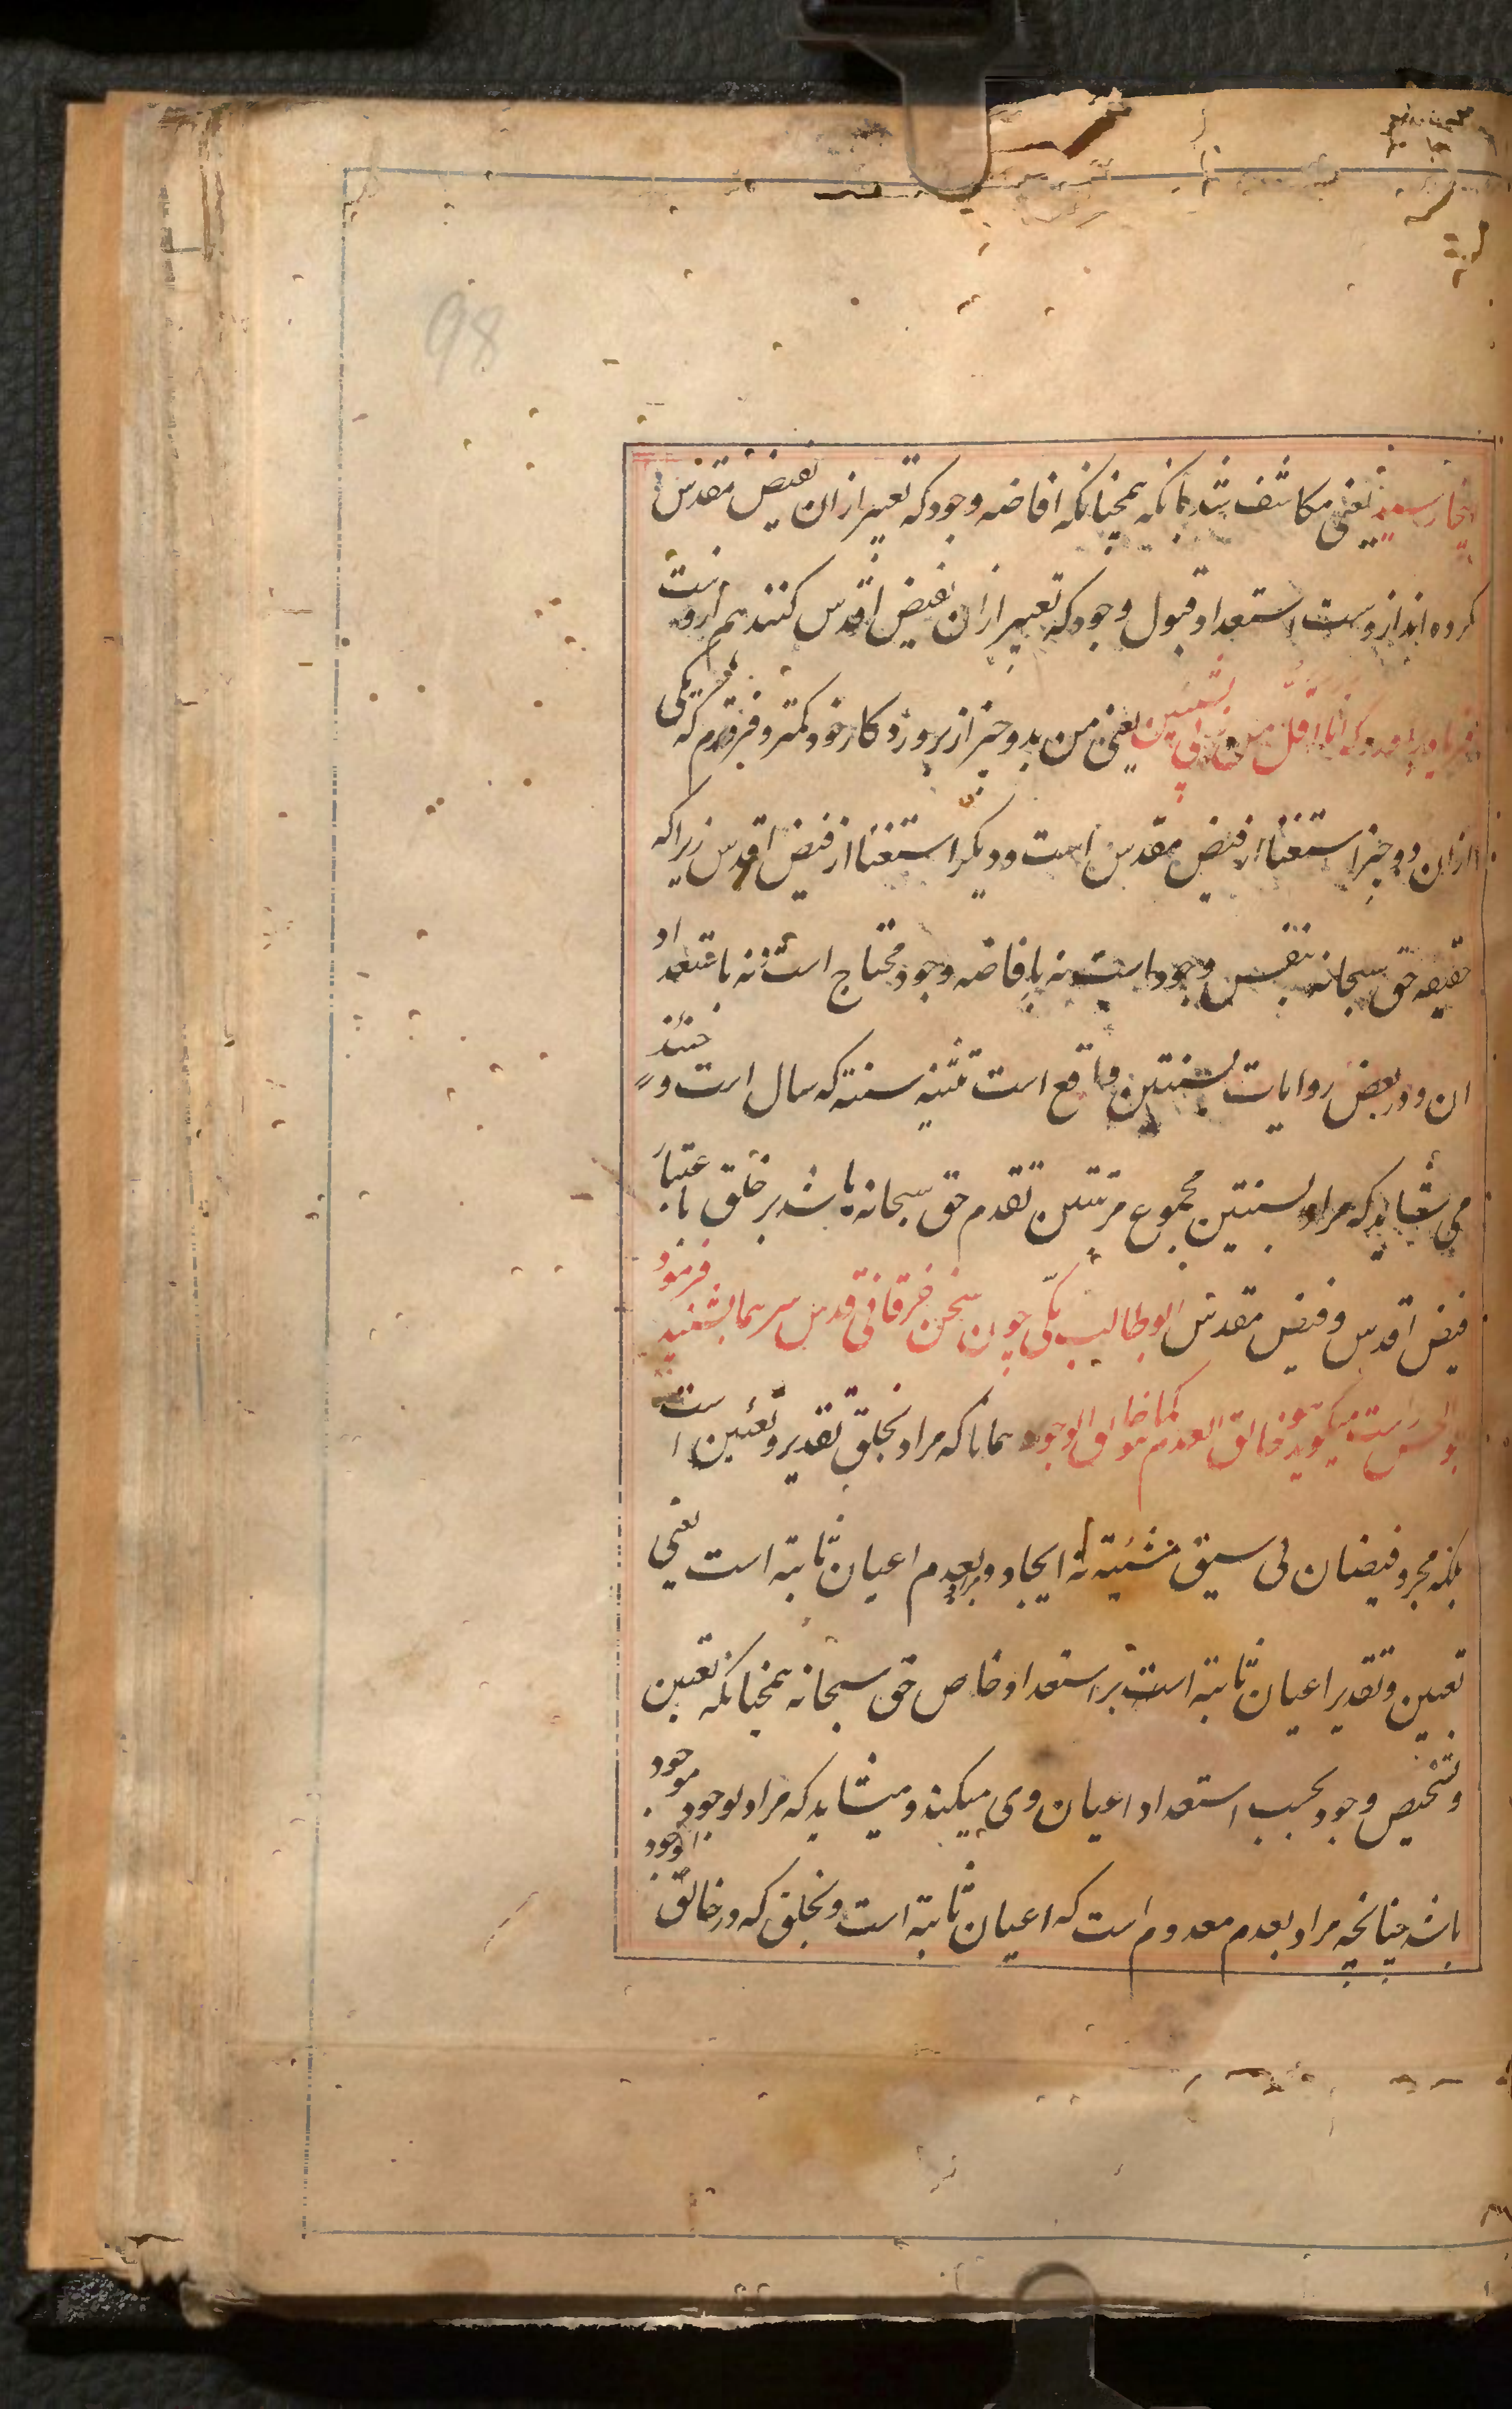 98
یعنی مکاشف شد بانکه همچنانکه افاضه وجود که تعبیر ازان بفیض مقدس
کرده اند ازوست استعداد قبول وجود که تعبیر ازان بفیض اقدس کنند هم ازوست
که انا اقل من ربی بشیئین یعنی من بدو چیز از پروردکار خود کمتر و فروترم که یکی
ازان دو چیز استغنا از فیض مقدس است و دیکر استغنا از فیض اقدس زیرا که
حقیقه حق سبحانه بنفس وجود است نه بافاضه وجود محتاج است و نه باستعداد
ان و در بعض روایات بسنتین واقع است تثنیه سنته که سال است و
می شاید که مراد بسنتین مجموع مرتبتین تقدم حق سبحانه باشد بر خلق باعتبار
فیض اقدس و فیض مقدس ابوطالب مکی چون سخن خرقانی قدس سرهما بشنید فرمود
بوالحسن راست میکوید هو خالق العدم کما هو خالق الوجود همانا که مراد بخلق تقدیر و تعیین است
بلکه مجرد فیضان بی سبق مشیته نه ایجاد و مراد بعدم اعیان ثابته است یعنی
تعیین و تقدیر اعیان ثابته است بر استعداد خاص حق سبحانه همچنانکه تعیین
و تشخیص وجود بحسب استعداد اعیان وی میکند و میشاید که مراد بوجود موجود
باشد چنانچه مراد بعدم معدوم است که اعیان ثابته است و بخلق که در خالق الوجود